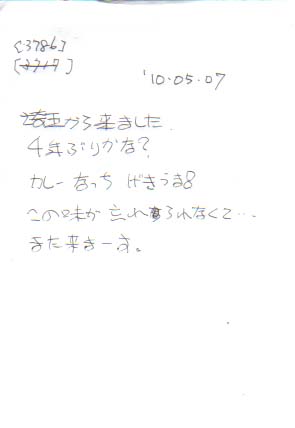 [3786]
'10.05.07
埼玉から来ました
4年ぶりかな?
カレーなっち げきうま8
この味が忘れられなくて…
また来まーす。